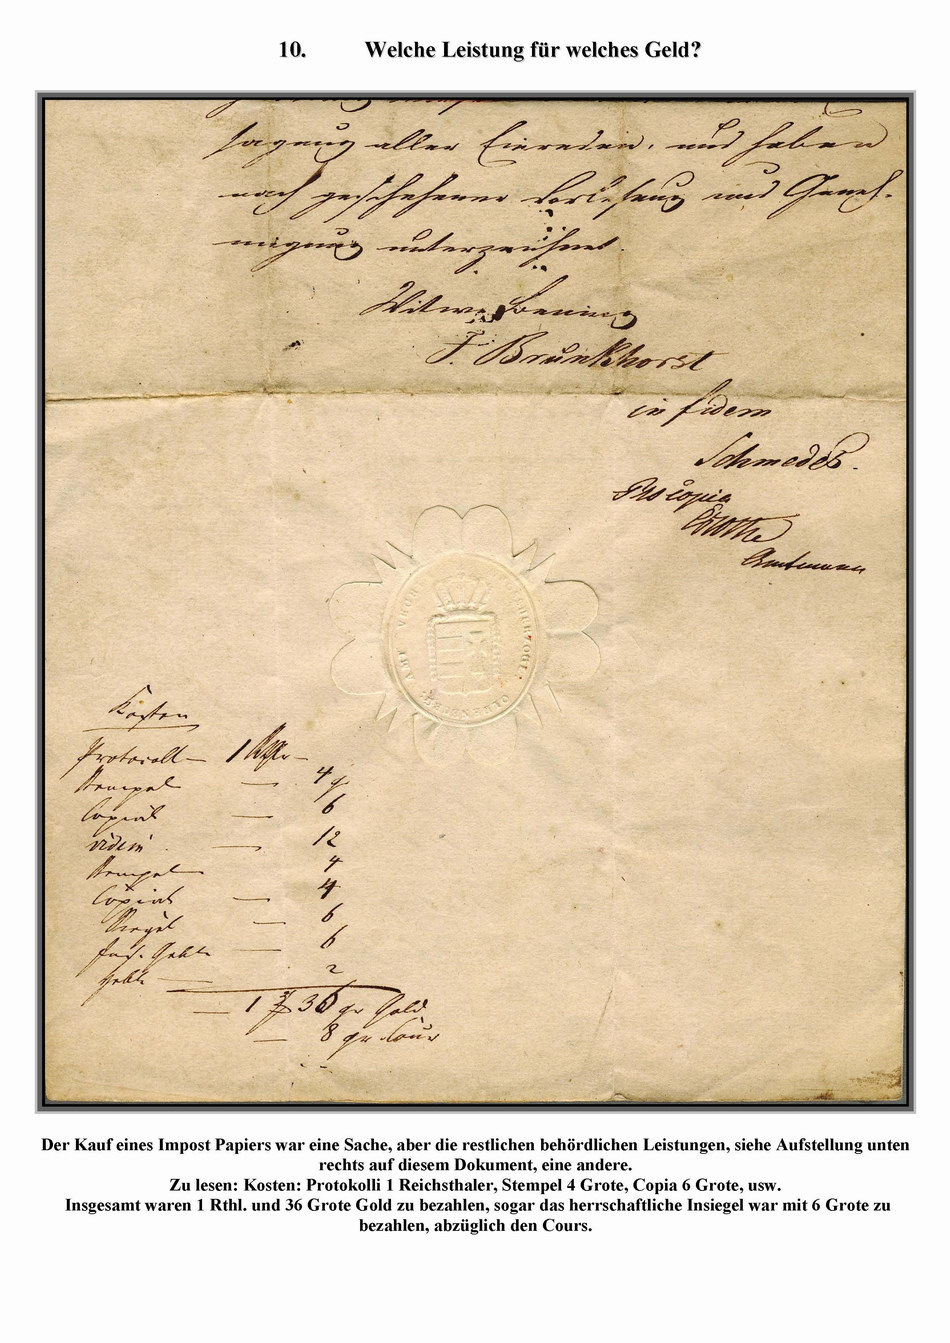 10. Welche Leistung für welches Geld?
sagung aller Einreden, und haben
nach geschehener Vorlesung und Geneh-
migung unterzeichnet.
Witwe Benning
F. Brunkhorst
in fidem
Schmedes.
Pro copia
Amtmann
AMT VECH
OLDENBURG
Kosten
Protocoll — 1
Stempel — 4 g
Copial — 6
vidim. — 12
Stempel — 4
Copial — 4
Siegel — 6
— 6
Gebh — 2
— 1 36 gr Gold
— 8 gr Cour
Der Kauf eines Impost Papiers war eine Sache, aber die restlichen behördlichen Leistungen, siehe Aufstellung unten
rechts auf diesem Dokument, eine andere.
Zu lesen: Kosten: Protokolli 1 Reichsthaler, Stempel 4 Grote, Copia 6 Grote, usw.
Insgesamt waren 1 Rthl. und 36 Grote Gold zu bezahlen, sogar das herrschaftliche Insiegel war mit 6 Grote zu
bezahlen, abzüglich den Cours.